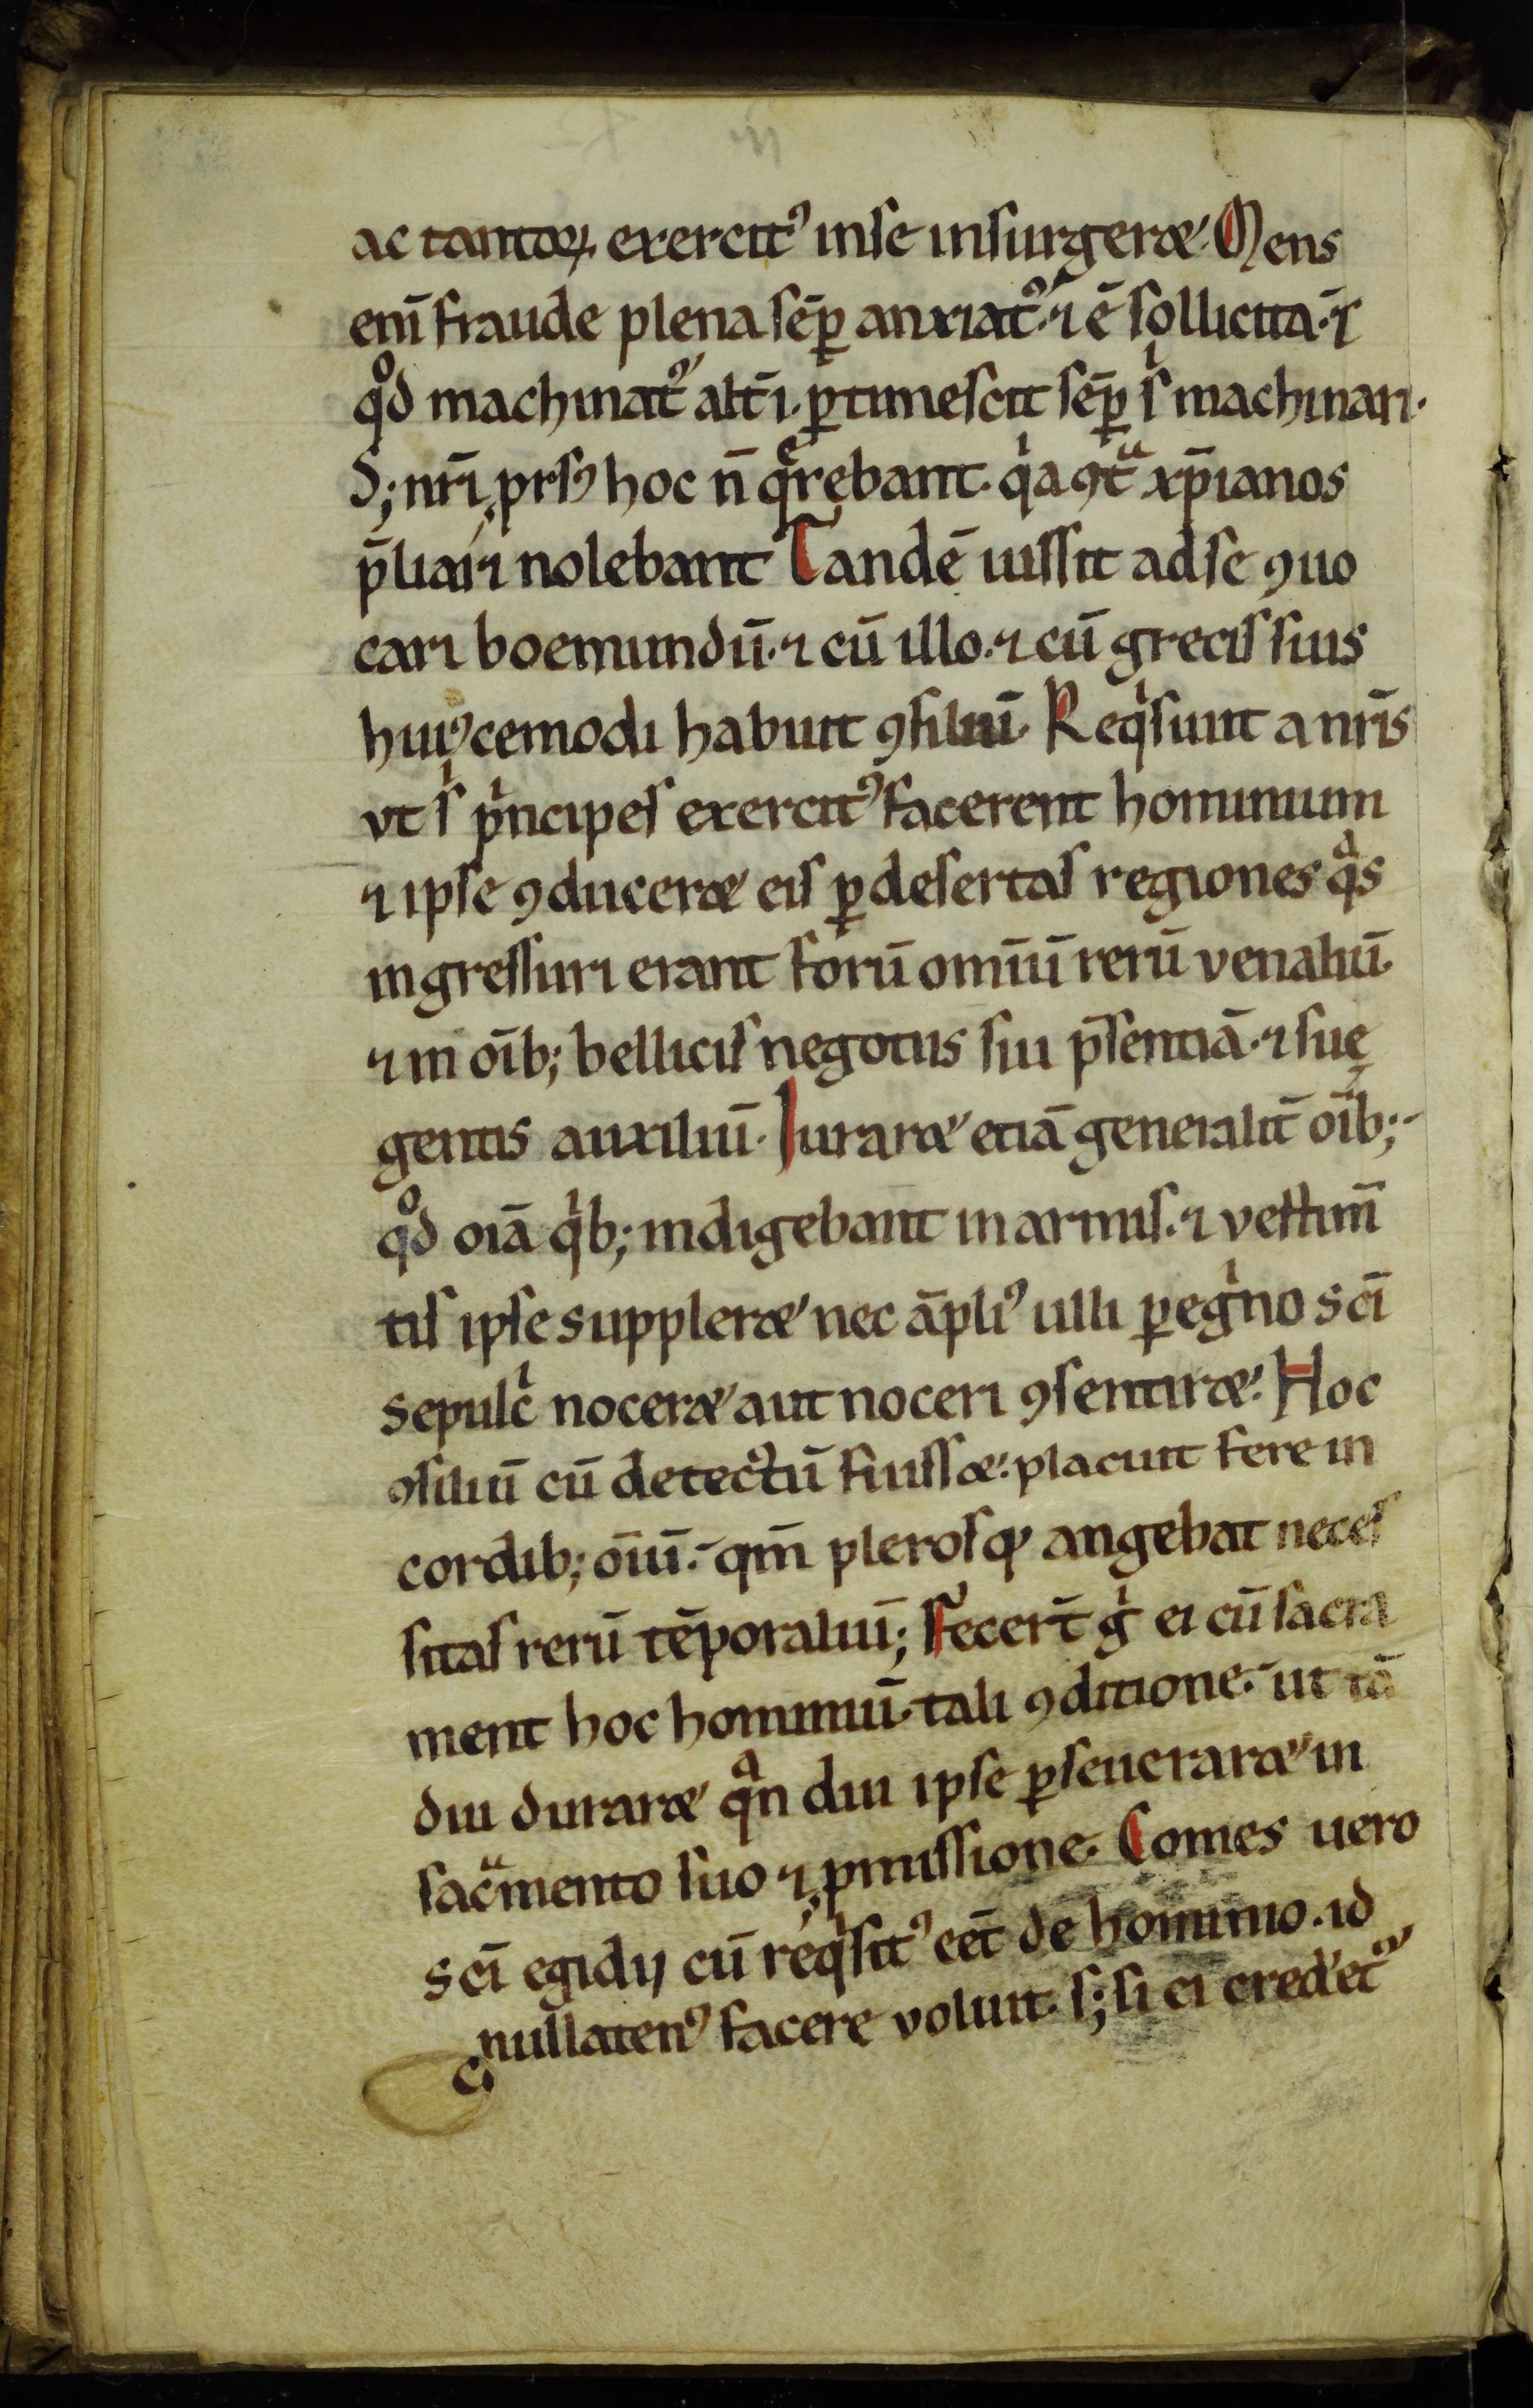 ac tantoꝝ exercitꝰ in se insurgeræ. Mens
enī fraude plena sēꝑ anxiat᷒. ⁊ ē sollicita. ⁊
qͦd machinat᷒ alt̄i. ꝑtimescit sēꝑ sⁱ machinari.
S; nr̄i ꝓrsꝰ hoc n̄ qͣrebant. qⁱa ꝯtͣ xp̄ianos
p̄liari nolebant Tandē iussit ad se ꝯuo
cari boemundū. ⁊ cū illo. ⁊ cū grecis suis
huiꝰcemodi habuit ꝯsiliū. Reqⁱsiuit a nr̄is
vt sⁱ pⁱncipes exercitꝰ facerent hominium
⁊ ipse ꝯduceræ eis ꝑ desertas regiones qͣs
ingressuri erant forū omīū rerū venaliū.
⁊ in oīb; bellicis negotiis sui p̄sentiā. ⁊ suę
gentis auxiliū. Iuraræ etiā generalit̄ oīb;
qͦd oīa qⁱb; indigebant in armis. ⁊ vestim̄
tis ipse suppleræ nec āpliꝰ ulli ꝑegⁱno scī
sepulcⁱ noceræ aut noceri ꝯsentiræ. Hoc
ꝯsiliū cū detectū fuissæ: placuit fere in
cordib; oīū. qm̄ plerosq; angebat neces
sitas rerū tēporaliū; Fecert̄ gⁱ ei cū sacra
ment hoc hominiū. tali ꝯditione. ut tā
diu duraræ qͣn diu ipse ꝑseueraræ in
sacͣmento suo ⁊ ꝓmissione. Comes uero
scī egidij cū reqⁱsitꝰ eēt de hominio. id
nullatenꝰ facere voluit. s; si ei credet᷒